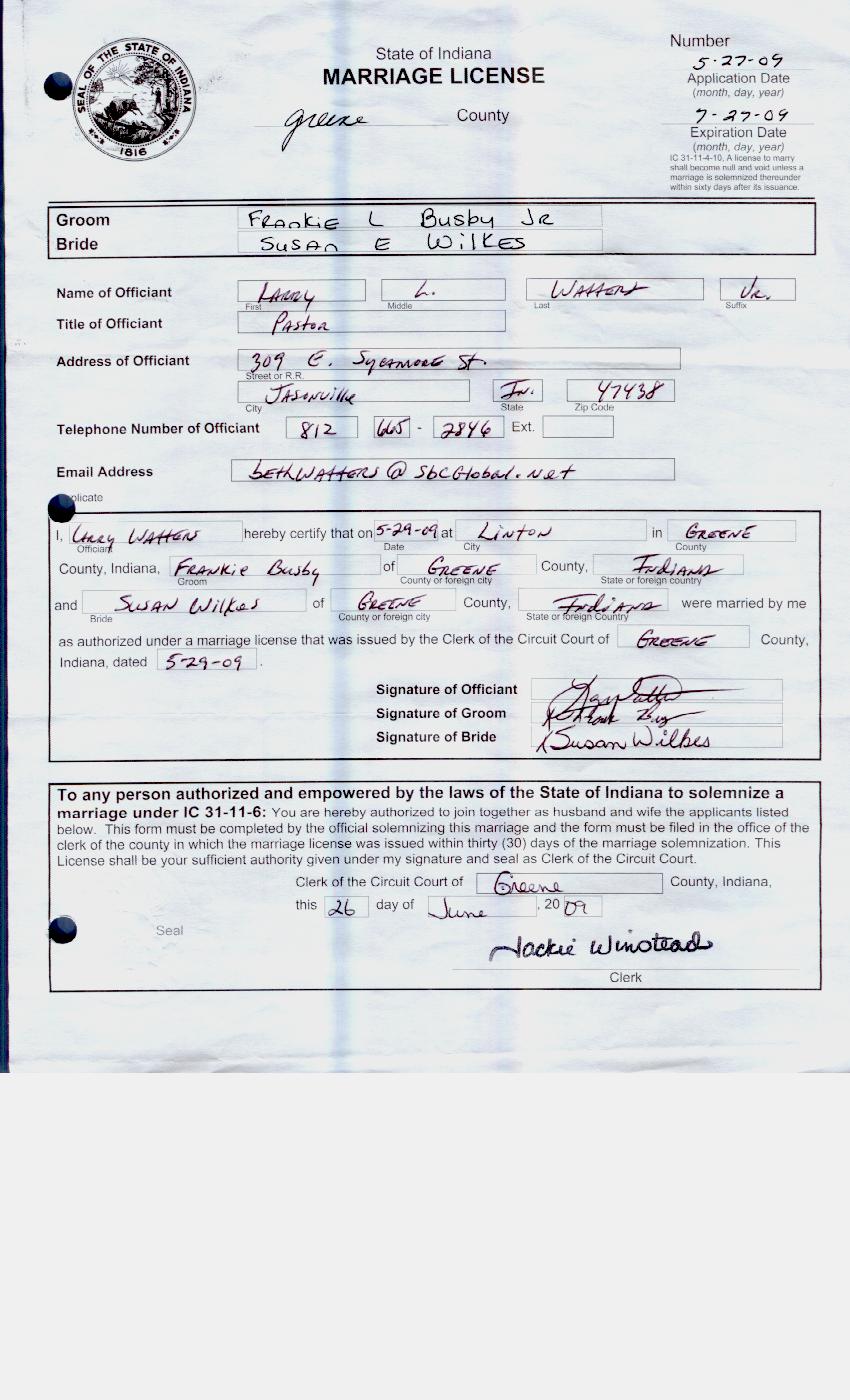 SEAL OF THE STATE OF INDIANA
1816
State of Indiana
MARRIAGE LICENSE
Greene County
Number
5-27-09
Application Date
(month, day, year)
7-27-09
Expiration Date
(month, day, year)
IC 31-11-4-10, A license to marry
shall become null and void unless a
marriage is solemnized thereunder
within sixty days after its issuance.
Groom FRANKIE L BUSBY JR
Bride SUSAN E WILKES
Name of Officiant LARRY L. WATTERS Jr.
First Middle Last Suffix
Title of Officiant PASTOR
Address of Officiant 309 E. SYCAMORE St.
Street or R.R.
JASONVIlle In. 47438
City State Zip Code
Telephone Number of Officiant 812 665 - 2846 Ext.
Email Address bETHWATTERS@SbCGlobal.Net
plicate
I, LARRY WATTERS hereby certify that on 5-29-09 at LINTON in GREENE
Officiant Date City County
County, Indiana, FRANKIE BUSBY of GREENE County, INDIANA
Groom County or foreign city State or foreign country
and SUSAN WILKES of GREENE County, INDIANA were married by me
Bride County or foreign city State or foreign Country
as authorized under a marriage license that was issued by the Clerk of the Circuit Court of GREENE County,
Indiana, dated 5-29-09.
Signature of Officiant
Signature of Groom
Signature of Bride X Susan Wilkes
To any person authorized and empowered by the laws of the State of Indiana to solemnize a
marriage under IC 31-11-6: You are hereby authorized to join together as husband and wife the applicants listed
below. This form must be completed by the official solemnizing this marriage and the form must be filed in the office of the
clerk of the county in which the marriage license was issued within thirty (30) days of the marriage solemnization. This
License shall be your sufficient authority given under my signature and seal as Clerk of the Circuit Court.
Clerk of the Circuit Court of Greene County, Indiana,
this 26 day of June, 20 09
Seal
Jackie Winstead
Clerk